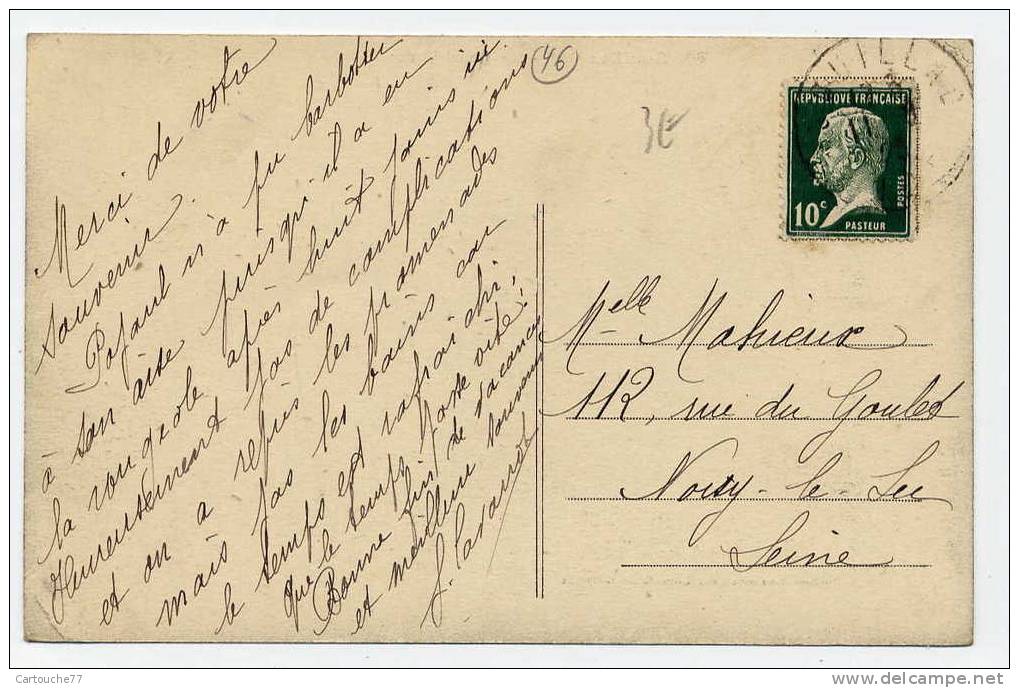 Merci de votre
souvenir.
Papaul n'a pu barbotter
à son aise puisqu'il a eu
la rougeole après huit jours ici.
Heureusement pas de complications
et on a repris les promenades
mais pas les bains car
le temps est rafraichi.
Que le temps passe vite!
Bonne fin de vacances
et meilleurs souvenirs
46
3€
REPVBLIQUE FRANÇAISE
POSTES
10c
PASTEUR
Melle Mahieux
112, rue du Goulet
Noisy-le-Sec
Seine
Cartouche77
www.delcampe.net